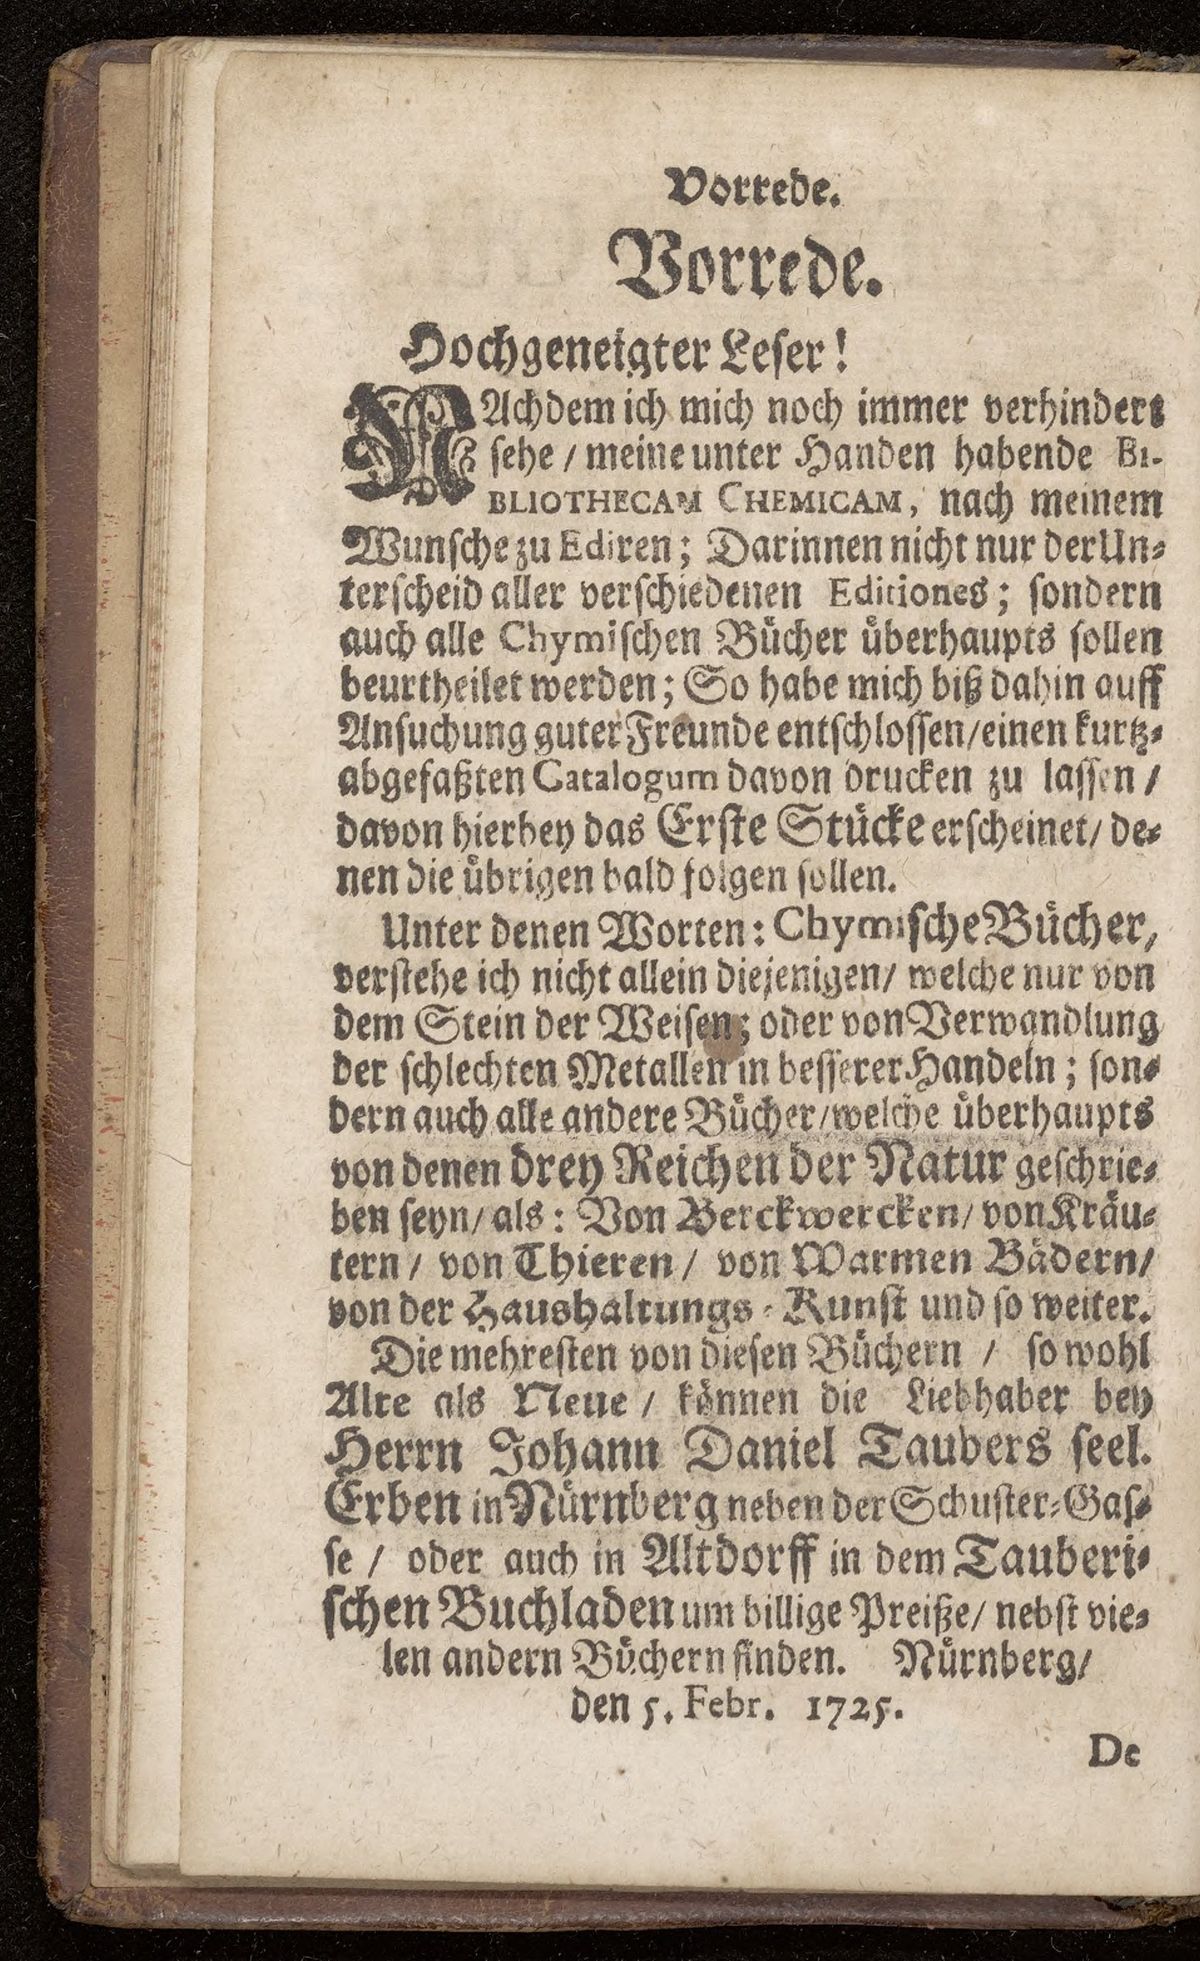 Vorrede.
Vorrede.
Hochgeneigter Leser!
NAchdem ich mich noch immer verhindert
sehe / meine unter Handen habende BI-
BLIOTHECAM CHEMICAM, nach meinem
Wunsche zu Ediren; Darinnen nicht nur der Un-
terscheid aller verschiedenen Editiones; sondern
auch alle Chymischen Bücher überhaupts sollen
beurtheilet werden; So habe mich biß dahin auff
Ansuchung guter Freunde entschlossen/einen kurtz-
abgefaßten Catalogum davon drucken zu lassen /
davon hierbey das Erste Stücke erscheinet/ de-
nen die übrigen bald folgen sollen.
Unter denen Worten: Chymische Bücher,
verstehe ich nicht allein diejenigen/ welche nur von
dem Stein der Weisen; oder von Verwandlung
der schlechten Metallen in besserer Handeln; son-
dern auch alle andere Bücher/welche überhaupts
von denen drey Reichen der Natur geschrie-
ben seyn/ als: Von Berckwercken/ von Kräu-
tern / von Thieren / von Warmen Bädern/
von der Haushaltungs-Kunst und so weiter.
Die mehresten von diesen Büchern / so wohl
Alte als Neue / können die Liebhaber bey
Herrn Johann Daniel Taubers seel.
Erben in Nürnberg neben der Schuster-Gas-
se / oder auch in Altdorff in dem Tauberi-
schen Buchladen um billige Preiße/ nebst vie-
len andern Büchern finden. Nürnberg/
den 5. Febr. 1725.
De